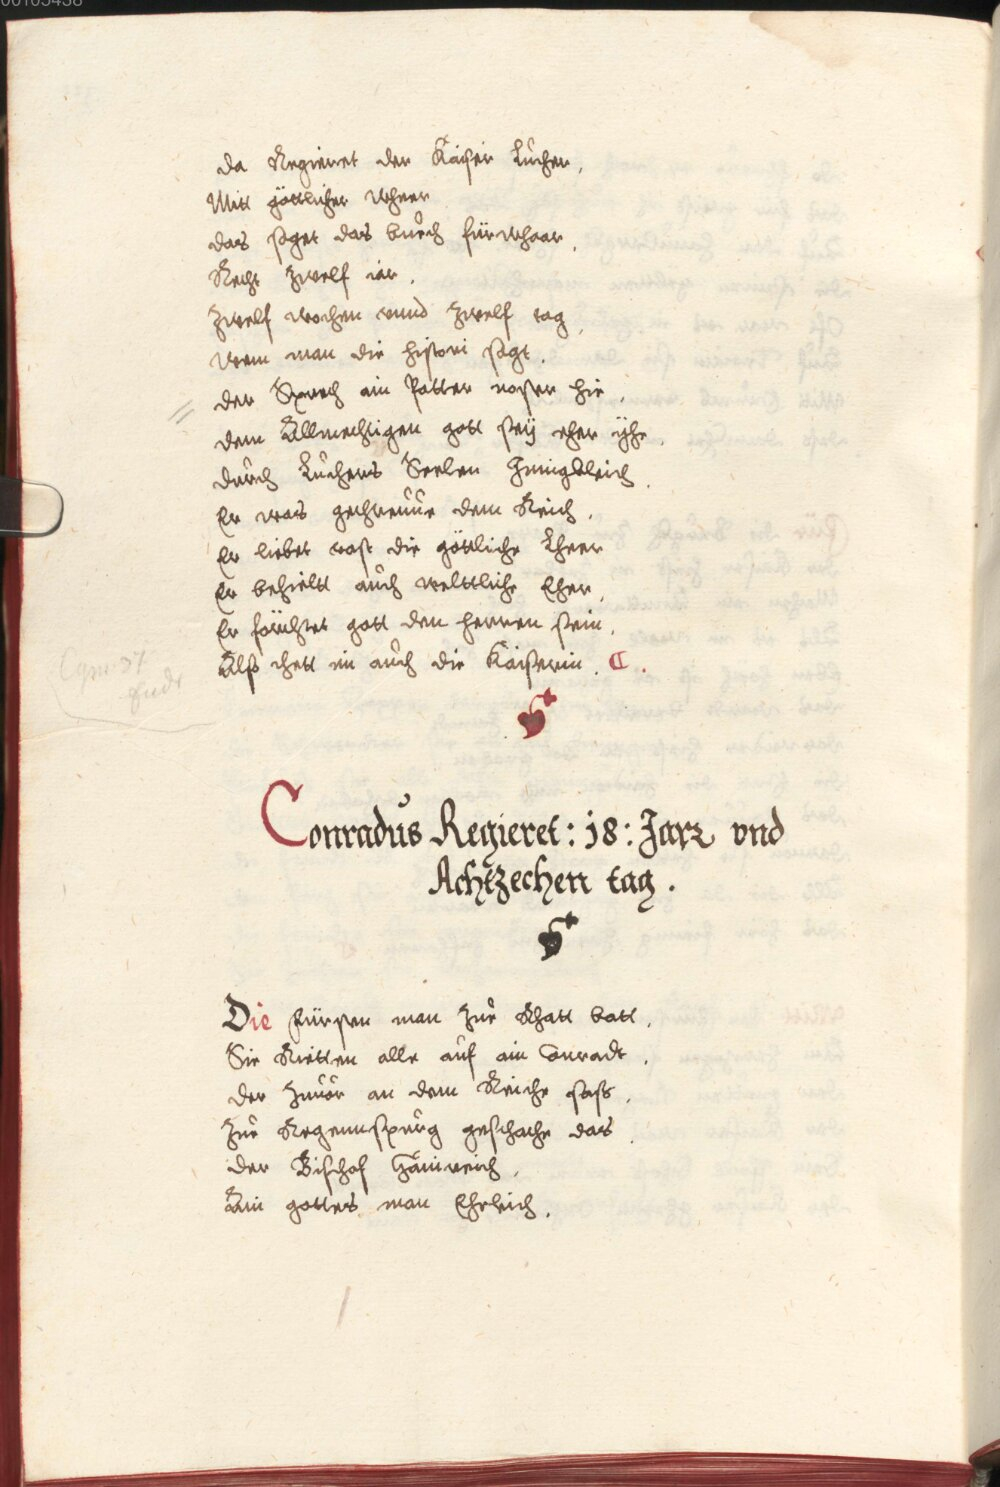 00103438
Da Regieret der Kaiser Lucher,
Mitt göttlicher wheer
das saget das buch fürwhaar,
Recht zwelf iar.
Zwelf wochen vnnd zwelf tag,
wem man die histori sagt.
der Sprech ain Patter noster hie,
dem Allmechtigen gott seÿ eher ÿhe,
durch Luchers Seelen
Er was gethreuue dem Reich.
Er liebet vast die göttliche Lheer
Er behieltt auch welttliche Eher,
Er forchtet gott den herren sein,
Alß thett im auch die Kaiserin.
Cgm 37
Ende
Conradus Regieret: 18: Jarr vnd
Achtzechen tag.
Die fürsten man zue Rhatt batt,
Sie Rietten alle auf ain Conradt,
der zuuor an dem Reiche sass,
zue Regennspurg geschache das,
der Bischof Hainreich,
Ain gottes man Ehrleich.